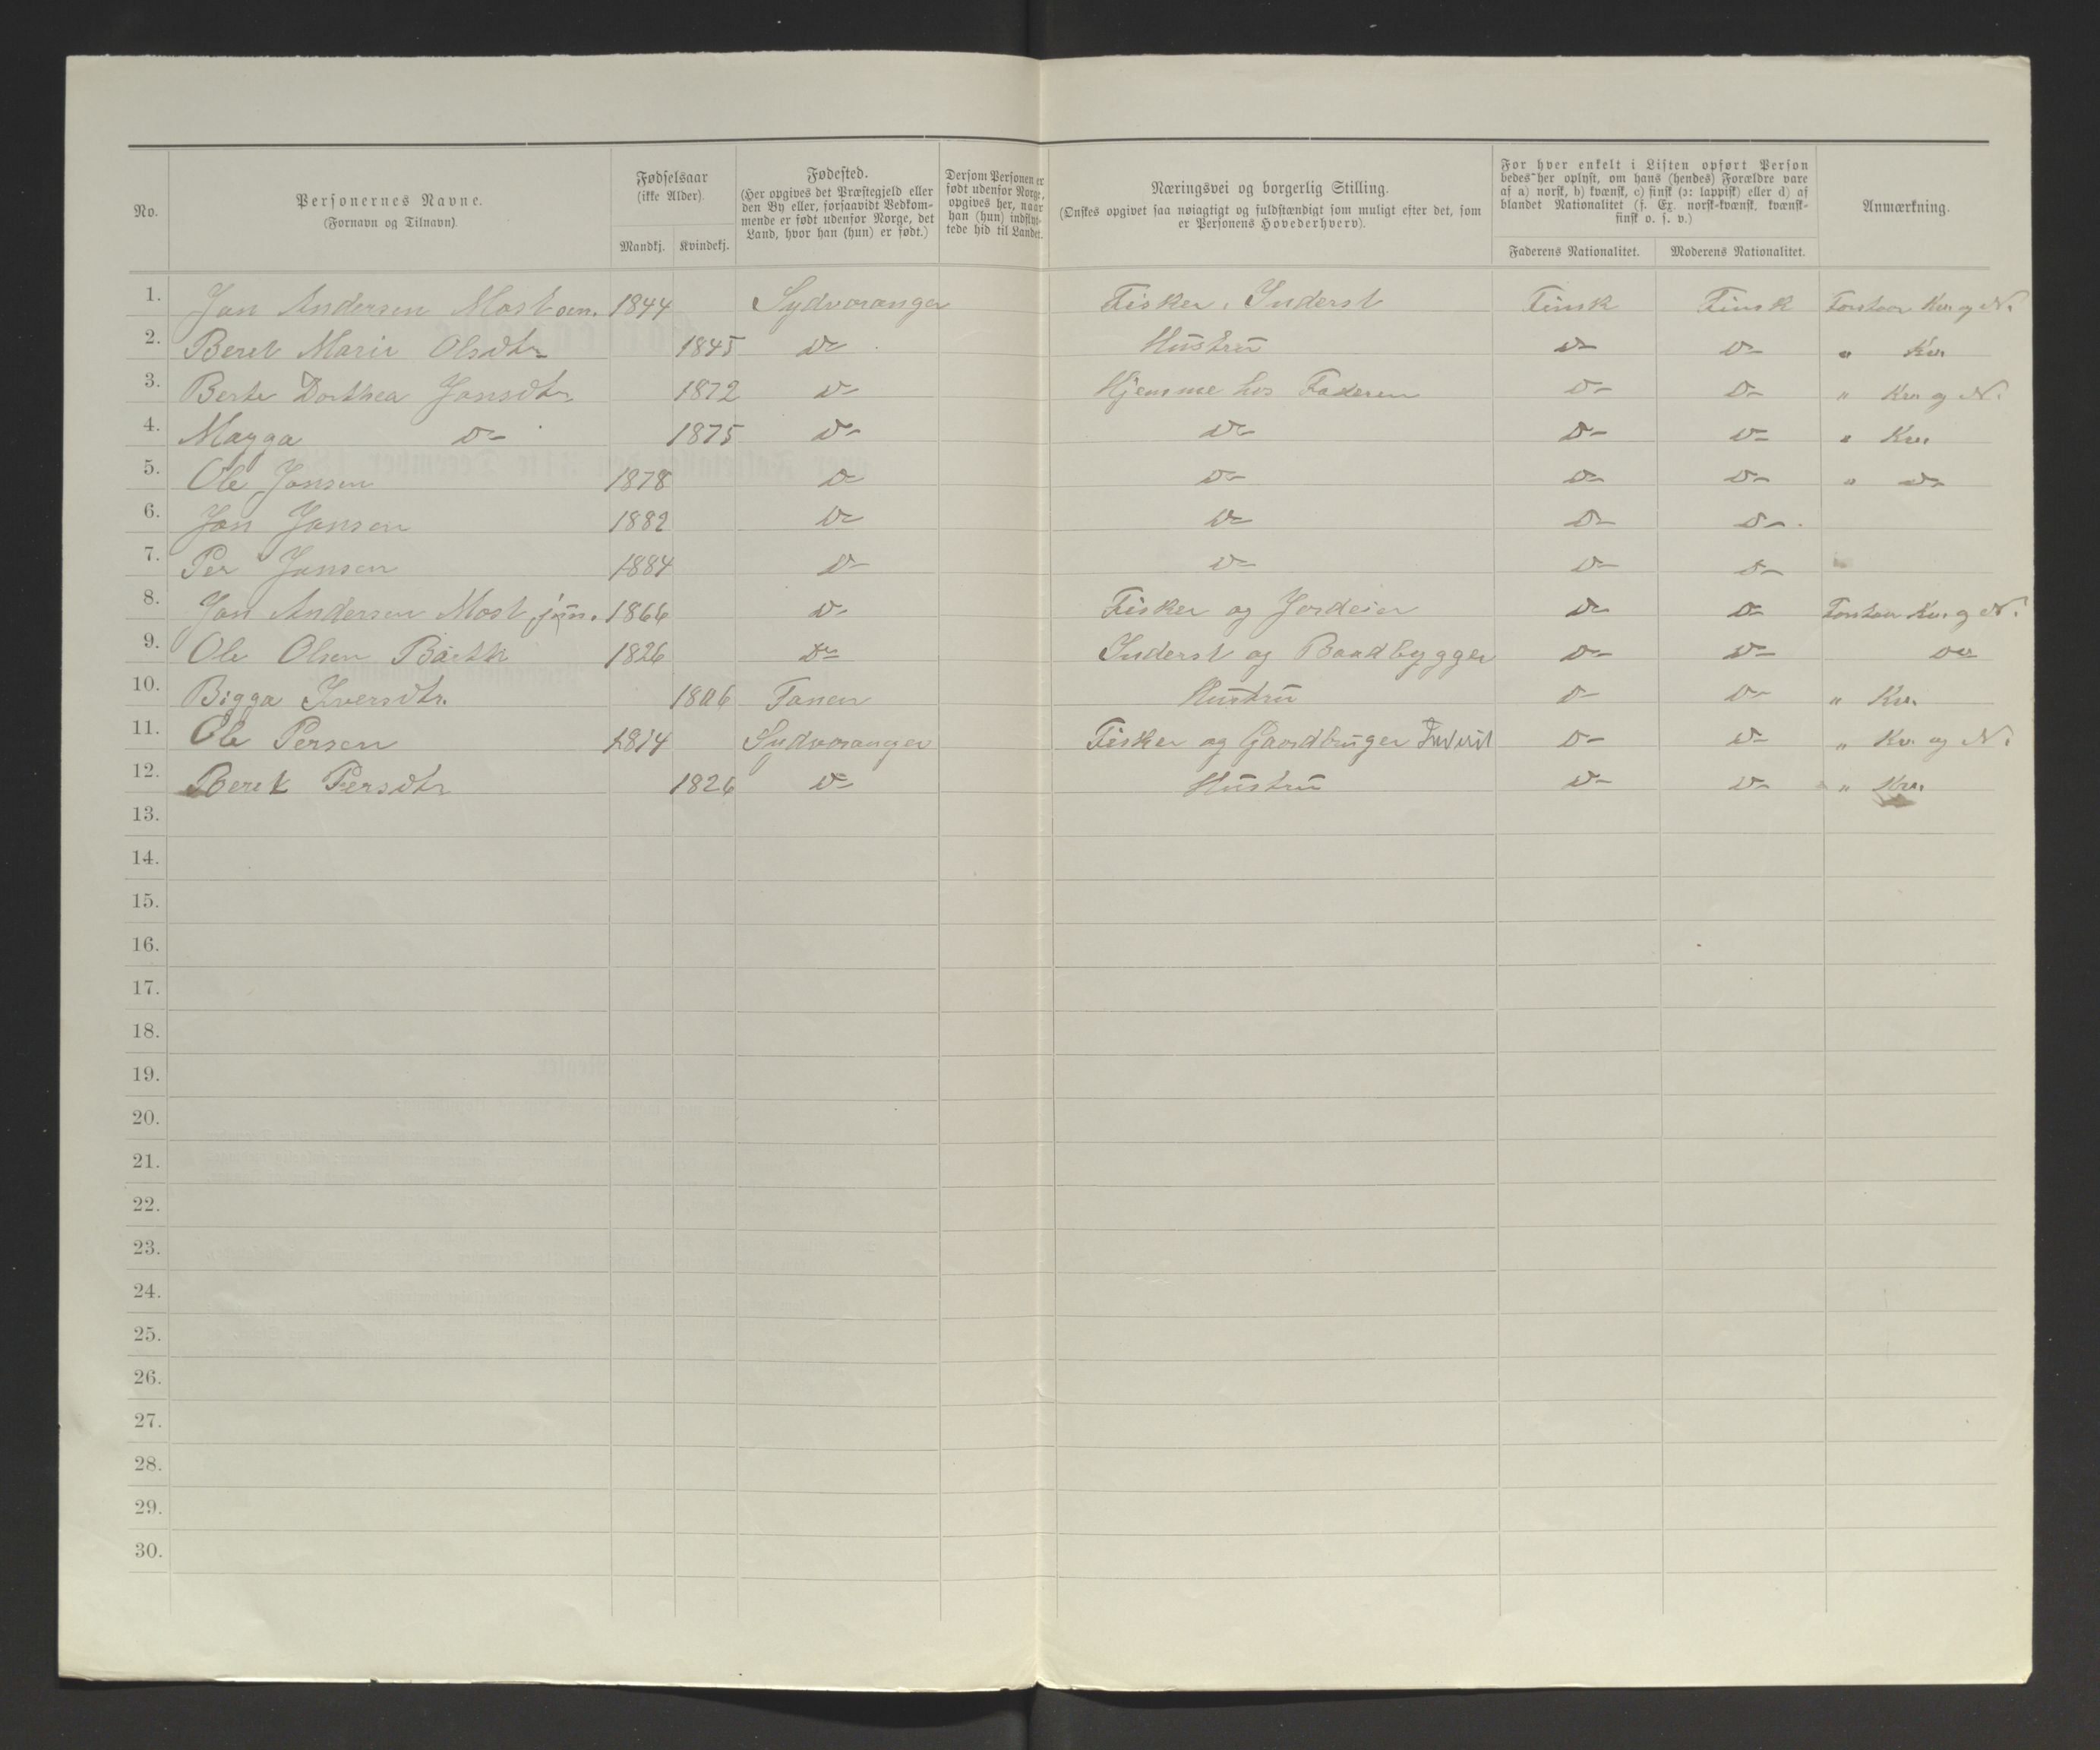 No.
Personernes Navne.
(Fornavn og Tilnavn).
Fødselsaar
(ikke Alder).
Mandkj. Kvindekj.
Fødested.
(Her opgives det Præstegjeld eller
den By eller, forsaavidt Vedkom-
mende er født udenfor Norge, det
Land, hvor han (hun) er født.)
Dersom Personen er
født udenfor Norge,
opgives her, naar
han (hun) indflyt-
tede hid til Landet.
Næringsvei og borgerlig Stilling.
(Ønskes opgivet saa nøiagtigt og fuldstændigt som muligt efter det, som
er Personens Hovederhverv).
For hver enkelt i Listen opført Person
bedes her oplyst, om hans (hendes) Forældre vare
af a) norsk, b) kvænsk, c) finsk (ɔ: lappisk) eller d) af
blandet Nationalitet (f. Ex. norsk-kvænsk, kvænsk-
finsk o. s. v.)
Faderens Nationalitet. Moderens Nationalitet.
Anmærkning.
1. Jan Andersen Most sen. 1844 Sydvaranger Fisker, Inderst Finsk Finsk Forstaar Kv. og N.
2. Beret Marie Olsdtr 1845 Do Hustru Do Do " Kv.
3. Berte Dorthea Jansdtr 1872 Do Hjemme hos Faderen Do Do " Kv. og N.
4. Magga Do 1875 Do Do Do Do " Kv.
5. Ole Jansen 1878 Do Do Do Do " Do
6. Jan Jansen 1882 Do Do Do Do
7. Per Jansen 1884 Do Do Do Do
8. Jan Andersen Most jun. 1866 Do Fisker og Jordeier Do Do Forstaar Kv. og N.
9. Ole Olsen 1826 Do Inderst og Baadbygger Do Do Do
10. Bigga Iversdtr. 1806 Tanen Hustru Do Do " Kv.
11. Ole Persen 1814 Sydvaranger Fisker og Gaardbruger Inderst Do Do " Kv. og N.
12. Beret Persdtr 1826 Do Hustru Do Do " Kv.
13.
14.
15.
16.
17.
18.
19.
20.
21.
22.
23.
24.
25.
26.
27.
28.
29.
30.